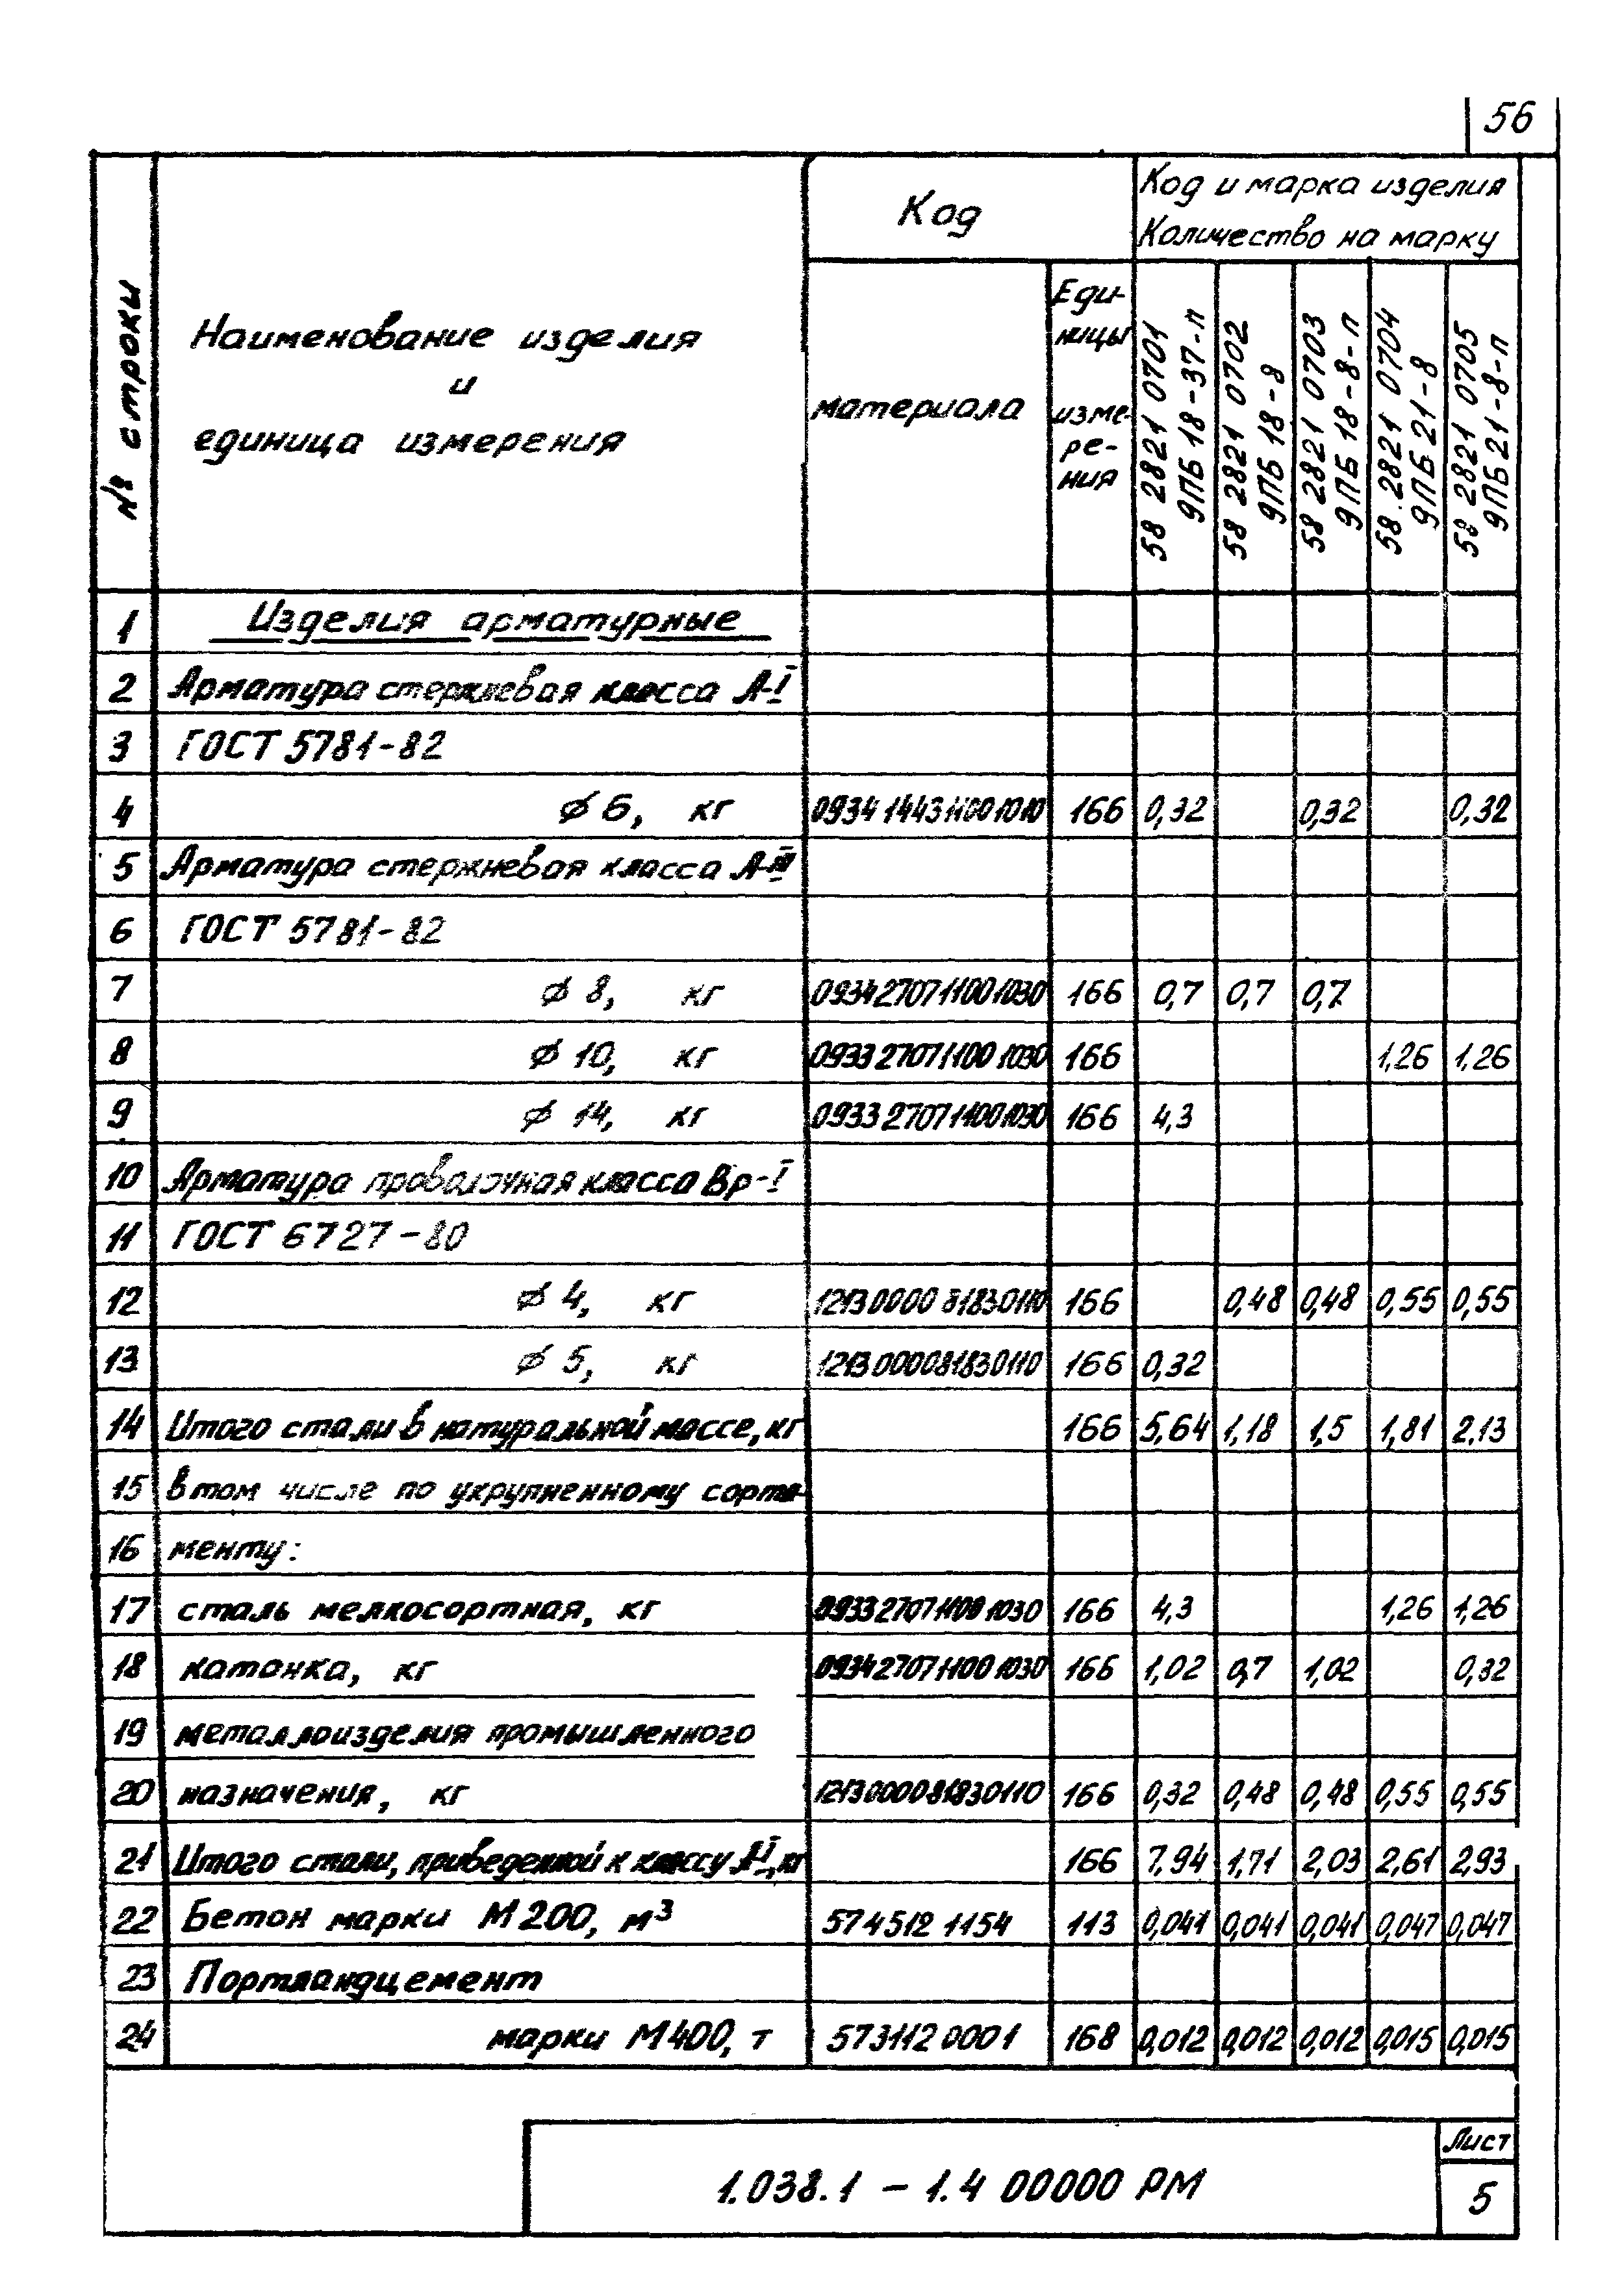 56
№ строки
Наименование изделия
и
единица измерения
Код
материала
Еди-
ницы
изме-
ре-
ния
Код и марка изделия
Количество на марку
58 2821 0701
9ПБ 18-37-п
58 2821 0702
9ПБ 18-8
58 2821 0703
9ПБ 18-8-п
58.2821 0704
9ПБ 21-8
58 2821 0705
9ПБ 21-8-п
1 Изделия арматурные
2 Арматура стержневая класса А-I
3 ГОСТ 5781-82
4 ⌀ 6, кг 0934 1443 1100 1010 166 0,32 0,32 0,32
5 Арматура стержневая класса А-III
6 ГОСТ 5781-82
7 ⌀ 8, кг 0934 2707 1100 1030 166 0,7 0,7 0,7
8 ⌀ 10, кг 0933 2707 1100 1030 166 1,26 1,26
9 ⌀ 14, кг 0933 2707 1100 1030 166 4,3
10 Арматура проволочная класса Вр-I
11 ГОСТ 6727-80
12 ⌀ 4, кг 1213 0000 81830110 166 0,48 0,48 0,55 0,55
13 ⌀ 5, кг 1213 000081830110 166 0,32
14 Итого стали в натуральной массе, кг 166 5,64 1,18 1,5 1,81 2.13
15 в том числе по укрупненному сорта-
16 менту:
17 сталь мелкосортная, кг 0933 2707 1100 1030 166 4,3 1,26 1,26
18 катанка, кг 0934 2707 1100 1030 166 1,02 0,7 1,02 0,32
19 металлоизделия промышленного
20 назначения, кг 1213 000081830110 166 0,32 0,48 0,48 0,55 0,55
21 Итого стали, приведенной к классу А-I, кг 166 7,94 1,71 2,03 2,61 2,93
22 Бетон марки М 200, м³ 574512 1154 113 0,041 0,041 0,041 0,047 0,047
23 Портландцемент
24 марки М400, т 573112 0001 168 0,012 0,012 0,012 0,015 0,015
1.038.1 - 1.4 00000 РМ
Лист
5